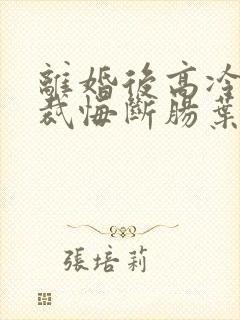 離婚後高冷
裁悔斷腸葉
張培莉